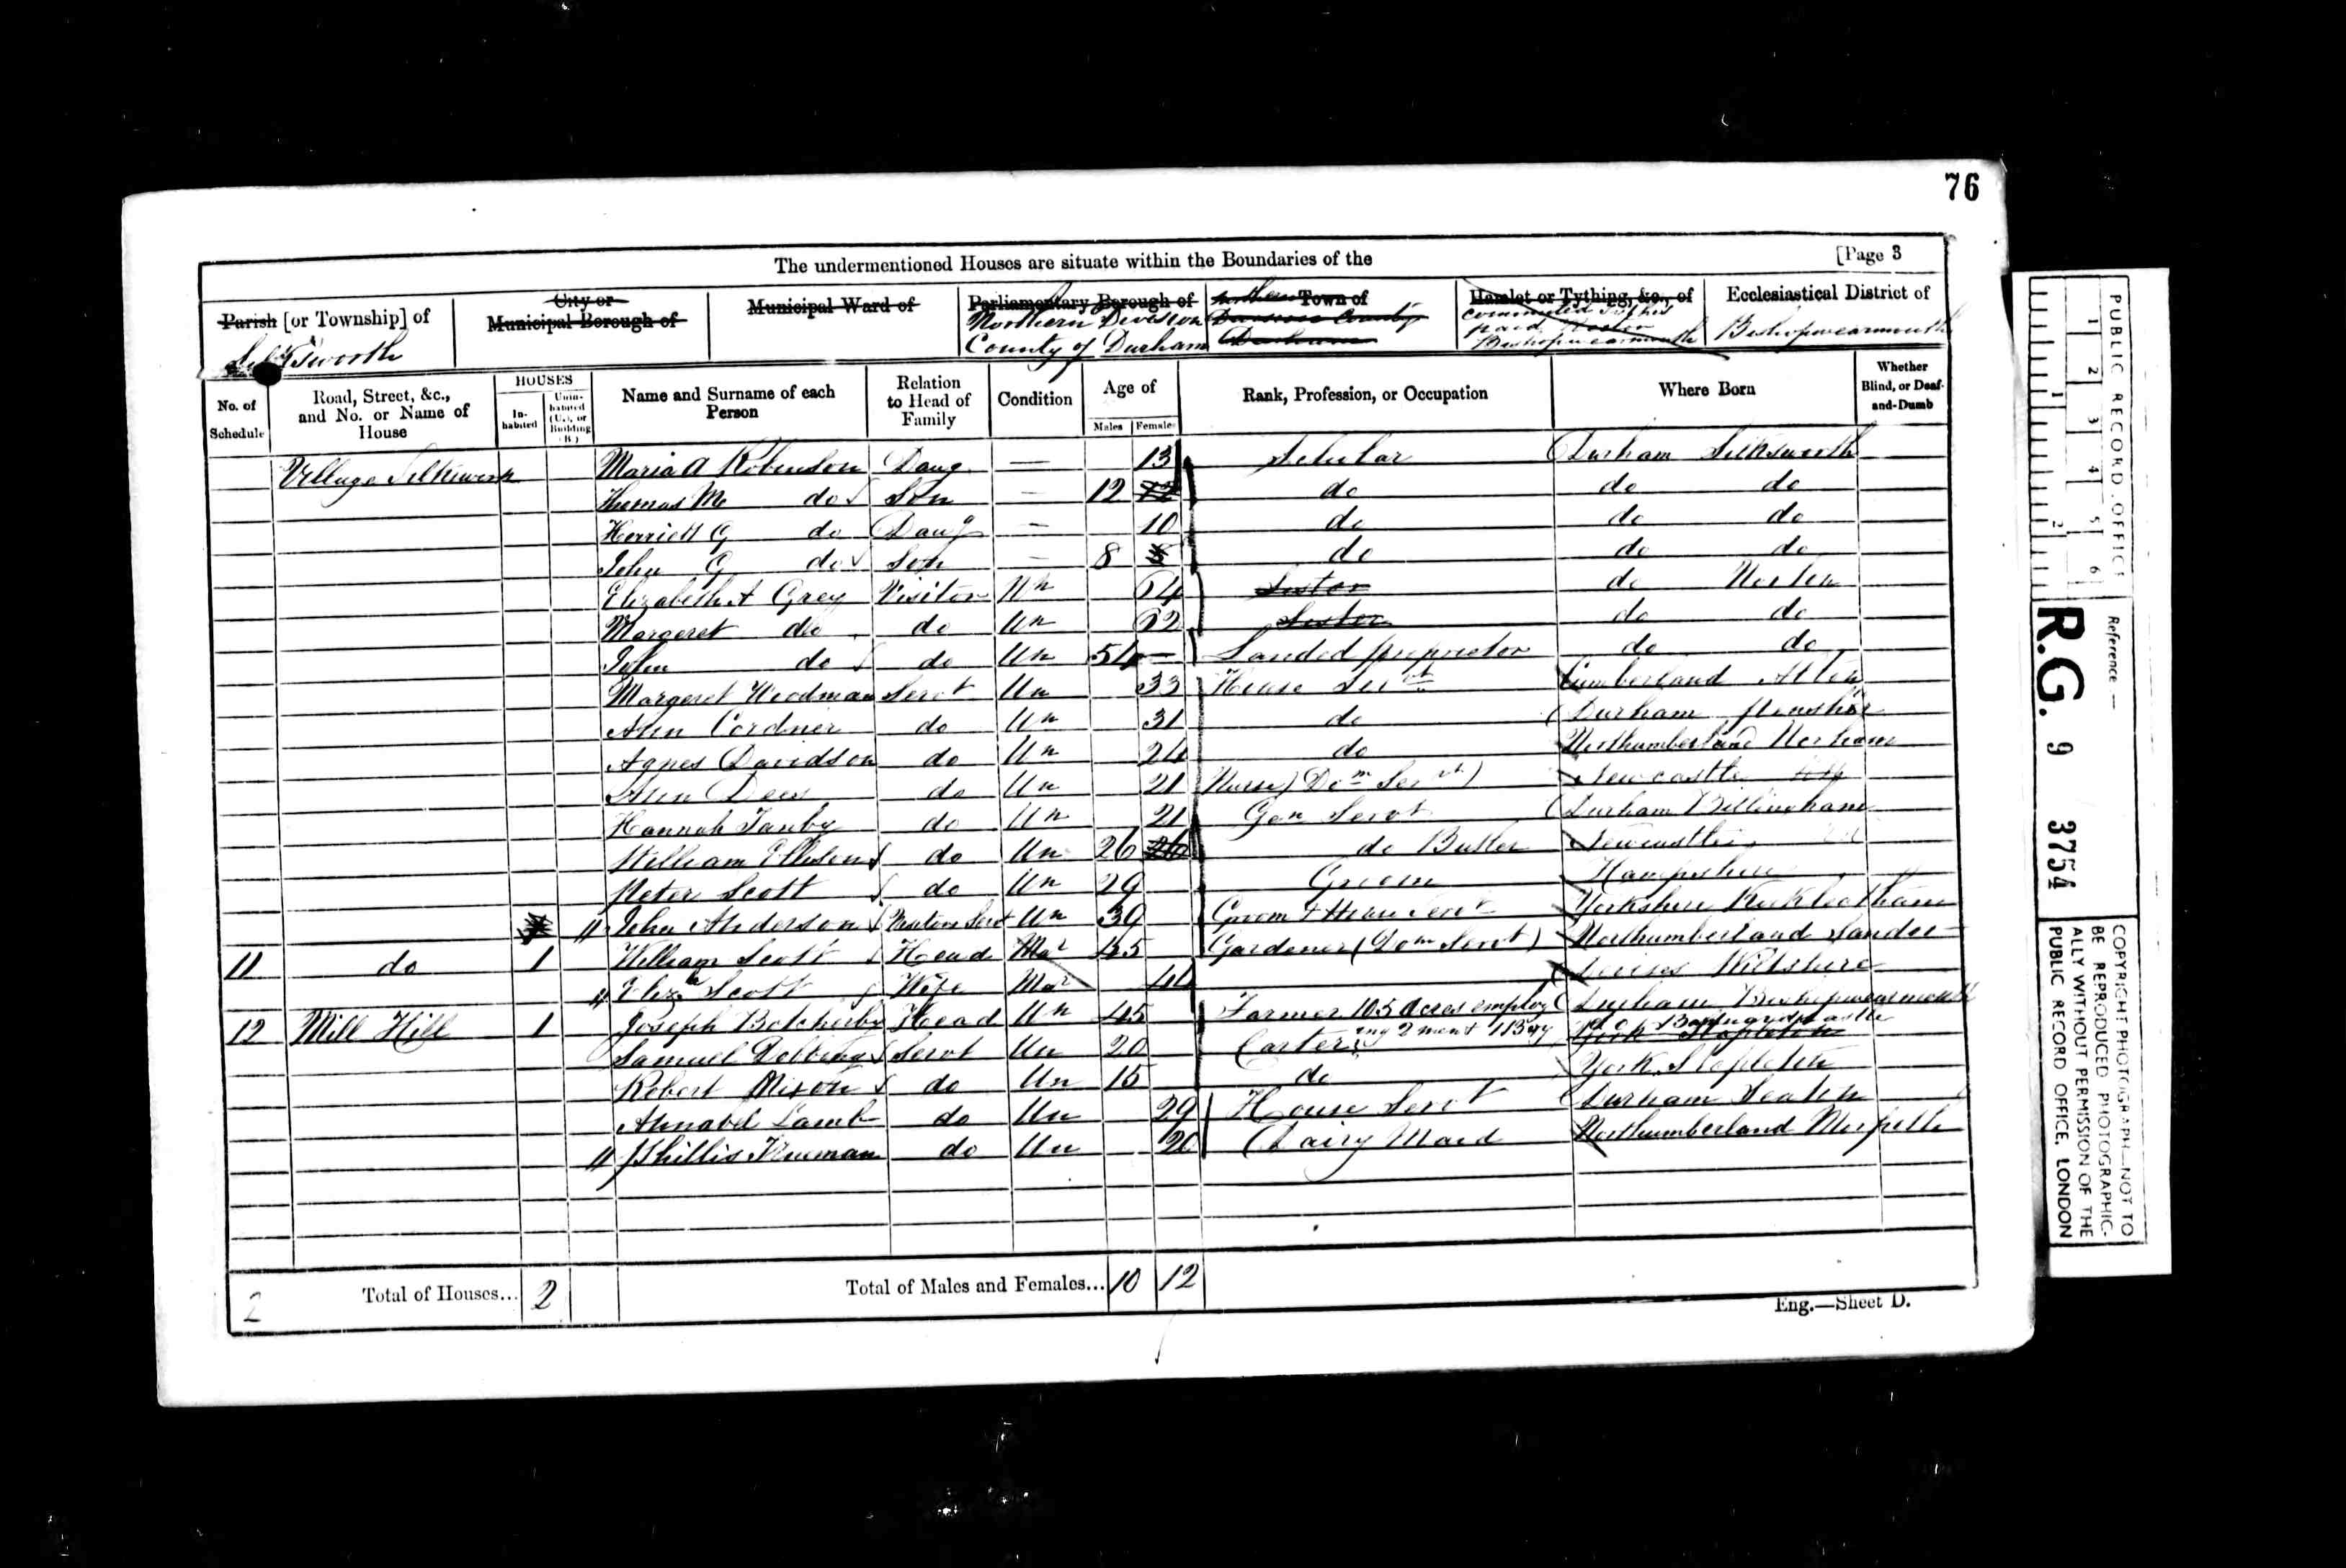 76
The undermentioned Houses are situate within the Boundaries of the [Page 3
Parish [or Township] of City or Municipal Borough of Municipal Ward of Parliamentary Borough of Town of Hamlet or Tything, &c., of Ecclesiastical District of
Silksworth Northern Division County of Durham Bishopwearmouth Bishopwearmouth
No. of Schedule Road, Street, &c., and No. or Name of House HOUSES In-habited Unin-habited (U.), or Building (B.) Name and Surname of each Person Relation to Head of Family Condition Age of Males Females Rank, Profession, or Occupation Where Born Whether Blind, or Deaf-and-Dumb
Village Silksworth Maria A Robinson Daug — 13 Scholar Durham Silksworth
Thomas M do Son — 12 do do do
Herriett G do Daug — 10 do do do
John G do Son — 8 do do do
Elizabeth A Grey Visitor Un 64 Sister do Norton
Margaret do do Un 62 Sister do do
John do do Un 54 Landed proprietor do do
Margeret Woodman Servt Un 33 House Servt Cumberland
Ann Cordner do Un 31 do Durham
Agnes Davidson do Un 24 do Northumberland Norham
Ann Dees do Un 21 Nurse (Dom Servt) Newcastle
Hannah Tanby do Un 21 Gen Servt Durham Billingham
William Ellison do Un 26 do Butler Newcastle
Peter Scott do Un 29 Groom Hampshire
John Anderson Visitors Servt Un 30 Groom & House Servt Yorkshire Kirkleatham
11 do 1 William Scott Head Mar 45 Gardener (Dom Servt) Northumberland
Eliza Scott Wife Mar 44 Devizes Wiltshire
12 Mill Hill 1 Joseph Botcherby Head Un 45 Farmer 105 Acres employing 2 men & 1 Boy Durham Bishopwearmouth
Samuel Servt Un 20 Carter do Barnardcastle
Robert Nixon do Un 15 do York Stapleton
Annabel Lamb do Un 29 House Servt Durham Seaton
Phillis Newman do Un 20 Dairy Maid Northumberland Morpeth
2 Total of Houses... 2 Total of Males and Females... 10 12
Eng.—Sheet D.
PUBLIC RECORD OFFICE
1 2 3 4 5 6
1 2
Reference —
R.G. 9 3754
COPYRIGHT PHOTOGRAPH—NOT TO
BE REPRODUCED PHOTOGRAPHIC-
ALLY WITHOUT PERMISSION OF THE
PUBLIC RECORD OFFICE, LONDON